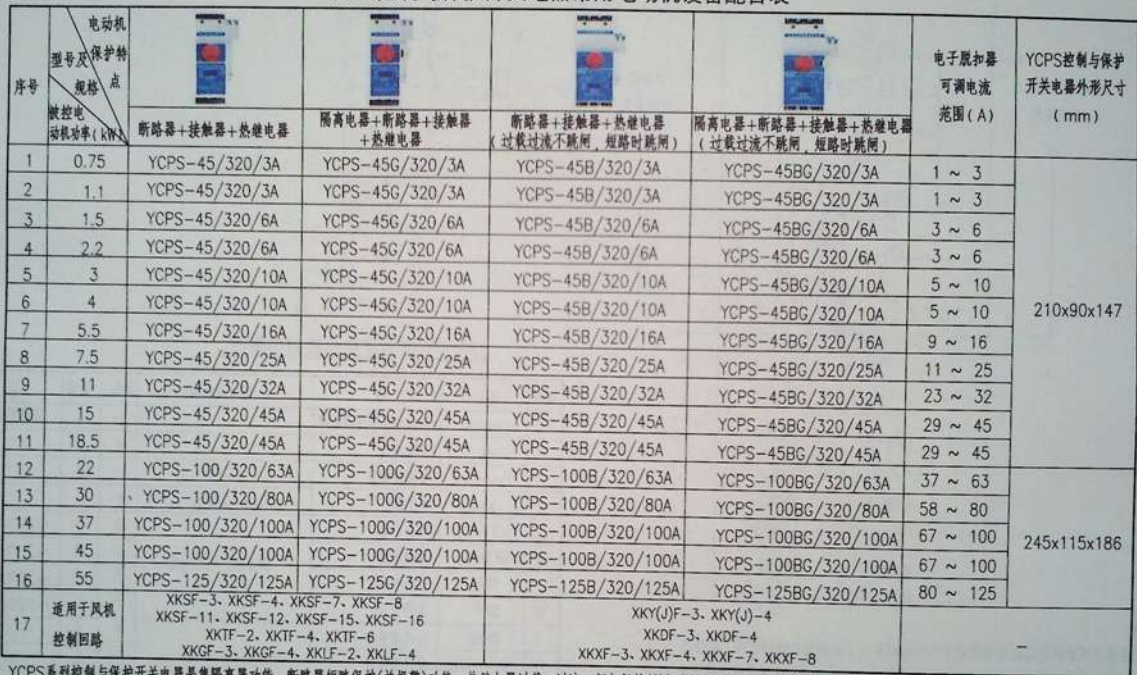 序号
电动机
保护特
点
型号及
规格
被控电
动机功率(kW)
断路器+接触器+热继电器
隔离电器+断路器+接触器
+热继电器
断路器+接触器+热继电器
(过载过流不跳闸,短路时跳闸)
隔离电器+断路器+接触器+热继电器
(过载过流不跳闸,短路时跳闸)
电子脱扣器
可调电流
范围(A)
YCPS控制与保护
开关电器外形尺寸
(mm)
1 0.75 YCPS-45/320/3A YCPS-45G/320/3A YCPS-45B/320/3A YCPS-45BG/320/3A 1 ~ 3
2 1.1 YCPS-45/320/3A YCPS-45G/320/3A YCPS-45B/320/3A YCPS-45BG/320/3A 1 ~ 3
3 1.5 YCPS-45/320/6A YCPS-45G/320/6A YCPS-45B/320/6A YCPS-45BG/320/6A 3 ~ 6
4 2.2 YCPS-45/320/6A YCPS-45G/320/6A YCPS-45B/320/6A YCPS-45BG/320/6A 3 ~ 6
5 3 YCPS-45/320/10A YCPS-45G/320/10A YCPS-45B/320/10A YCPS-45BG/320/10A 5 ~ 10
6 4 YCPS-45/320/10A YCPS-45G/320/10A YCPS-45B/320/10A YCPS-45BG/320/10A 5 ~ 10
210x90x147
7 5.5 YCPS-45/320/16A YCPS-45G/320/16A YCPS-45B/320/16A YCPS-45BG/320/16A 9 ~ 16
8 7.5 YCPS-45/320/25A YCPS-45G/320/25A YCPS-45B/320/25A YCPS-45BG/320/25A 11 ~ 25
9 11 YCPS-45/320/32A YCPS-45G/320/32A YCPS-45B/320/32A YCPS-45BG/320/32A 23 ~ 32
10 15 YCPS-45/320/45A YCPS-45G/320/45A YCPS-45B/320/45A YCPS-45BG/320/45A 29 ~ 45
11 18.5 YCPS-45/320/45A YCPS-45G/320/45A YCPS-45B/320/45A YCPS-45BG/320/45A 29 ~ 45
12 22 YCPS-100/320/63A YCPS-100G/320/63A YCPS-100B/320/63A YCPS-100BG/320/63A 37 ~ 63
13 30 YCPS-100/320/80A YCPS-100G/320/80A YCPS-100B/320/80A YCPS-100BG/320/80A 58 ~ 80
14 37 YCPS-100/320/100A YCPS-100G/320/100A YCPS-100B/320/100A YCPS-100BG/320/100A 67 ~ 100
245x115x186
15 45 YCPS-100/320/100A YCPS-100G/320/100A YCPS-100B/320/100A YCPS-100BG/320/100A 67 ~ 100
16 55 YCPS-125/320/125A YCPS-125G/320/125A YCPS-125B/320/125A YCPS-125BG/320/125A 80 ~ 125
17
适用于风机
控制回路
XKSF-3、XKSF-4、XKSF-7、XKSF-8
XKSF-11、XKSF-12、XKSF-15、XKSF-16
XKTF-2、XKTF-4、XKTF-6
XKGF-3、XKGF-4、XKLF-2、XKLF-4
XKY(J)F-3、XKY(J)-4
XKDF-3、XKDF-4
XKXF-3、XKXF-4、XKXF-7、XKXF-8
—